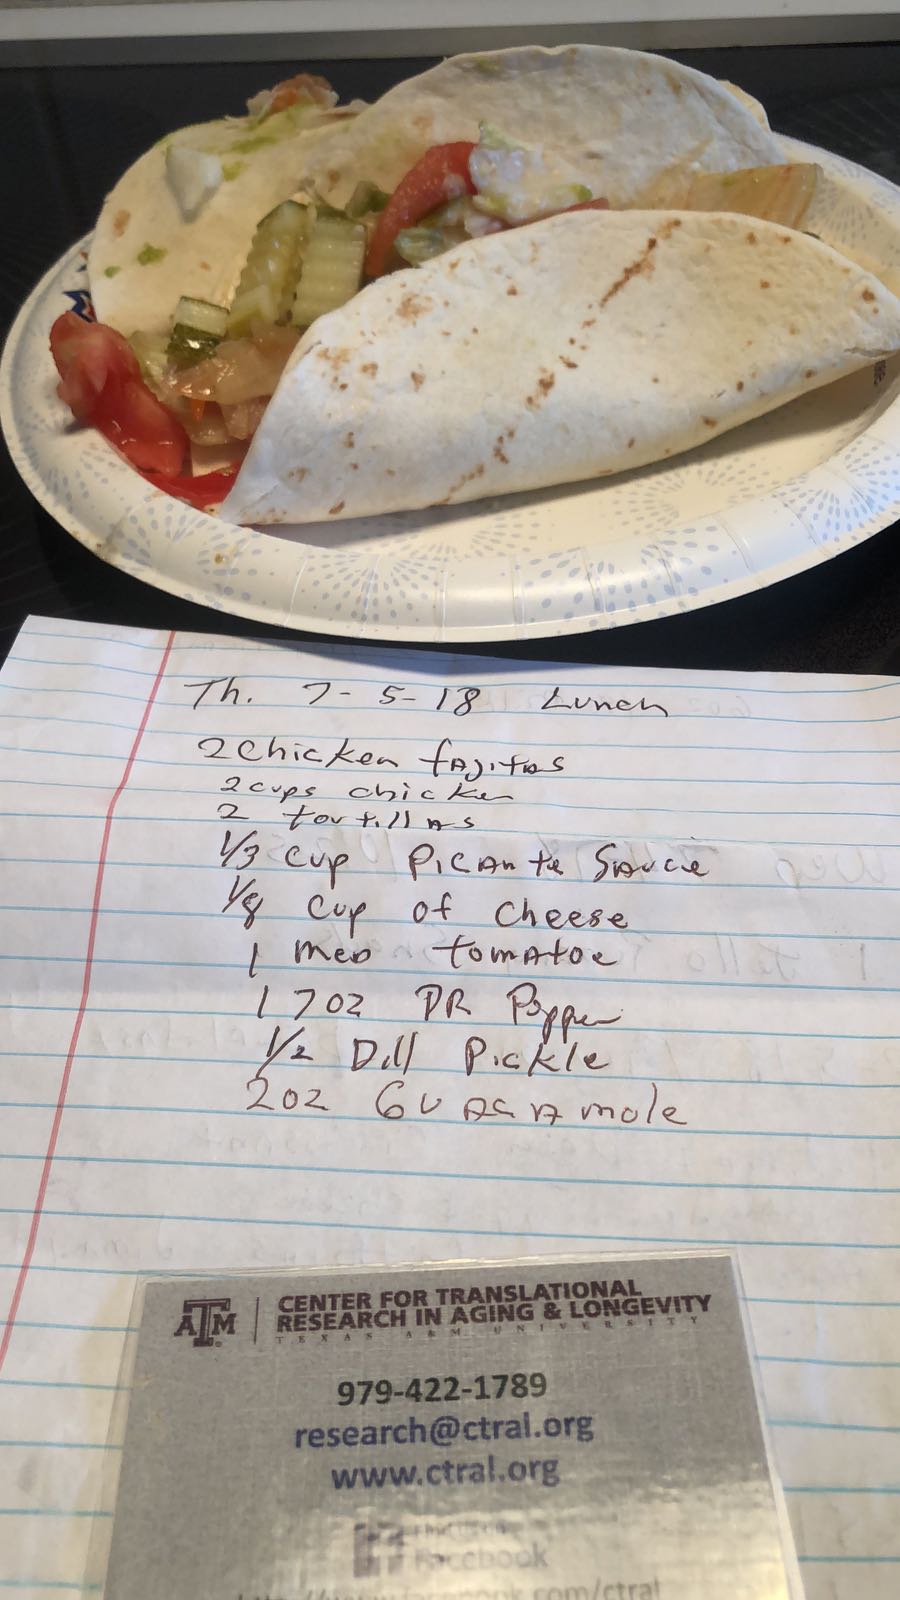 Th. 7-5-18 Lunch
2 Chicken fajitas
2 cups chicken
2 tortillas
1/3 cup Picante Sauce
1/8 cup of cheese
1 med tomatoe
1 7oz DR Pepper
1/2 Dill Pickle
2oz Guacamole
ATM
CENTER FOR TRANSLATIONAL
RESEARCH IN AGING & LONGEVITY
TEXAS A&M UNIVERSITY
979-422-1789
research@ctral.org
www.ctral.org
Find us on
Facebook
http://www.facebook.com/ctral